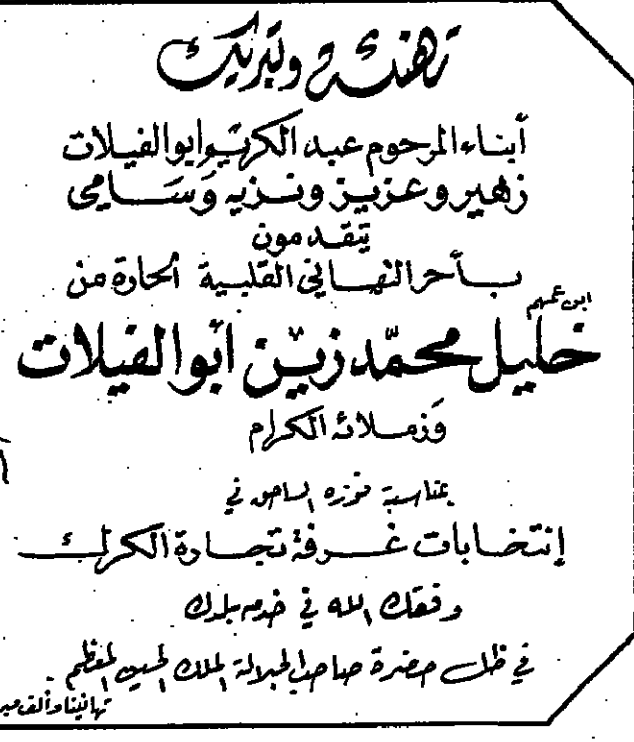 تهنئة وتبريك
أبناء المرحوم عبد الكريم ابوالفيلات
زهير وعزيز ونزيه وسامي
يتقدمون
بأحر التهاني القلبية الحارة من
ابن عمهم
خليل محمّد زين أبوالفيلات
وَزملائه الكرام
بمناسبة فوزه الساحق في
إنتخابات غرفة تجارة الكرك
وفقك الله في خدمة بلدك
في ظل حضرة صاحب الجلالة الملك الحسين المعظم .
تهانينا وألف